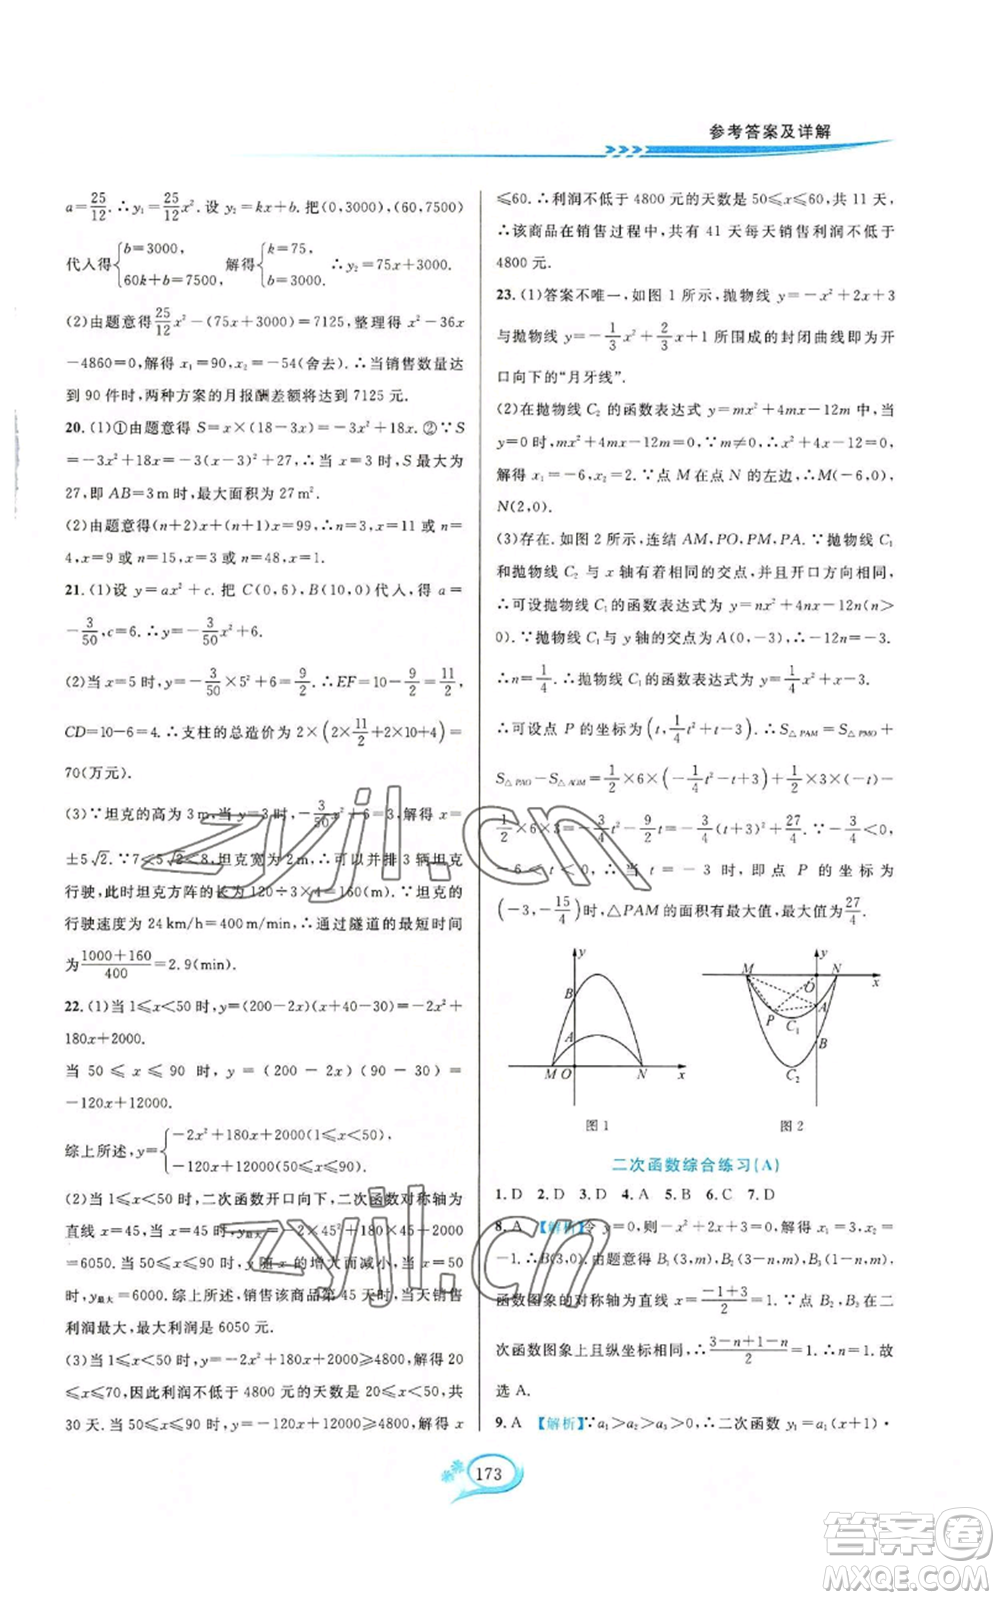 参考答案及详解
a=25/12.∴y₁=25/12x². 设 y₂=kx+b. 把(0,3000),(60,7500)
代入得{b=3000, 60k+b=7500, 解得{k=75, b=3000. ∴y₂=75x+3000.
(2)由题意得25/12x²-(75x+3000)=7125,整理得 x²-36x
-4860=0,解得 x₁=90,x₂=-54(舍去).∴当销售数量达
到 90 件时,两种方案的月报酬差额将达到 7125 元.
20. (1)①由题意得 S=x×(18-3x)=-3x²+18x. ②∵S
=-3x²+18x=-3(x-3)²+27,∴当 x=3 时,S 最大值为
27,即 AB=3 m 时,最大面积为 27 m².
(2)由题意得(n+2)x+(n+1)x=99,∴n=3,x=11 或 n=
4,x=9 或 n=15,x=3 或 n=48,x=1.
21. (1)设 y=ax²+c. 把 C(0,6),B(10,0)代入,得 a=
-3/50,c=6.∴y=-3/50x²+6.
(2)当 x=5 时,y=-3/50×5²+6=9/2.∴EF=10-9/2=11/2,
CD=10-6=4.∴支柱的总造价为 2×(2×11/2+2×10+4)=
70(万元).
(3)∵坦克的高为 3 m,当 y=3 时,-3/50x²+6=3,解得 x=
±5√2. ∵7<5√2<8,坦克宽为 2 m,∴可以并排 3 辆坦克
行驶,此时坦克方阵的长为 120÷3×4=160(m). ∵坦克的
行驶速度为 24 km/h=400 m/min,∴通过隧道的最短时间
为(1000+160)/400=2.9(min).
22. (1)当 1≤x<50 时,y=(200-2x)(x+40-30)=-2x²+
180x+2000.
当 50 ≤ x ≤ 90 时, y = (200 - 2x)(90 - 30) =
-120x+12000.
综上所述,y={-2x²+180x+2000(1≤x<50), -120x+12000(50≤x≤90).
(2)当 1≤x<50 时,二次函数开口向下,二次函数对称轴为
直线 x=45,当 x=45 时,y最大=-2×45²+180×45+2000
=6050. 当 50≤x≤90 时,y 随 x 的增大而减小,当 x=50
时,y最大=6000. 综上所述,销售该商品第 45 天时,当天销售
利润最大,最大利润是 6050 元.
(3)当 1≤x<50 时,y=-2x²+180x+2000≥4800,解得 20
≤x<70,因此利润不低于 4800 元的天数是 20≤x<50,共
30 天. 当 50≤x≤90 时,y=-120x+12000≥4800,解得 x
≤60.∴利润不低于 4800 元的天数是 50≤x≤60,共 11 天.
∴该商品在销售过程中,共有 41 天每天销售利润不低于
4800 元.
23. (1)答案不唯一,如图 1 所示,抛物线 y=-x²+2x+3
与抛物线 y=-1/3x²+2/3x+1 所围成的封闭曲线即为开
口向下的“月牙线”.
(2)在抛物线 C₂ 的函数表达式 y=mx²+4mx-12m 中,当
y=0 时,mx²+4mx-12m=0. ∵m≠0,∴x²+4x-12=0,
解得 x₁=-6,x₂=2. ∵点 M 在点 N 的左边,∴M(-6,0),
N(2,0).
(3)存在. 如图 2 所示,连结 AM,PO,PM,PA. ∵抛物线 C₁
和抛物线 C₂ 与 x 轴有着相同的交点,并且开口方向相同,
∴可设抛物线 C₁ 的函数表达式为 y=nx²+4nx-12n(n>
0). ∵抛物线 C₁与 y 轴的交点为 A(0,-3),∴-12n=-3.
∴n=1/4.∴抛物线 C₁ 的函数表达式为 y=1/4x²+x-3.
∴可设点 P 的坐标为(t,1/4t²+t-3).∴S△PAM=S△PMO+
S△PAO-S△AOM=1/2×6×(-1/4t²-t+3)+1/2×3×(-t)-
1/2×6×3=-3/4t²-9/2t=-3/4(t+3)²+27/4. ∵-3/4<0,
-6<t<0,∴当 t=-3 时,即点 P 的坐标为
(-3,-15/4)时,△PAM 的面积有最大值,最大值为27/4.
y
B
A
M O N x
图 1
M O N x
y
A
P
C₁
B
C₂
图 2
二次函数综合练习(A)
1. D 2. D 3. D 4. A 5. B 6. C 7. D
8. A 【解析】令 y=0,则-x²+2x+3=0,解得 x₁=3,x₂=
-1.∴B(3,0). 由题意得 B₁(3,m),B₂(3-n,m),B₃(-n,m),
函数图象的对称轴为直线 x=(-1+3)/2=1. ∵点 B₂,B₃ 在二
次函数图象上且纵坐标相同,∴(3-n+1-n)/2=1.∴n=1. 故
选 A.
9. A 【解析】∵a₁>a₂>a₃>0,∴二次函数 y₁=a₁(x+1)·
173
zyjl.cn
zyjl.cn
答案卷
MXQE.COM